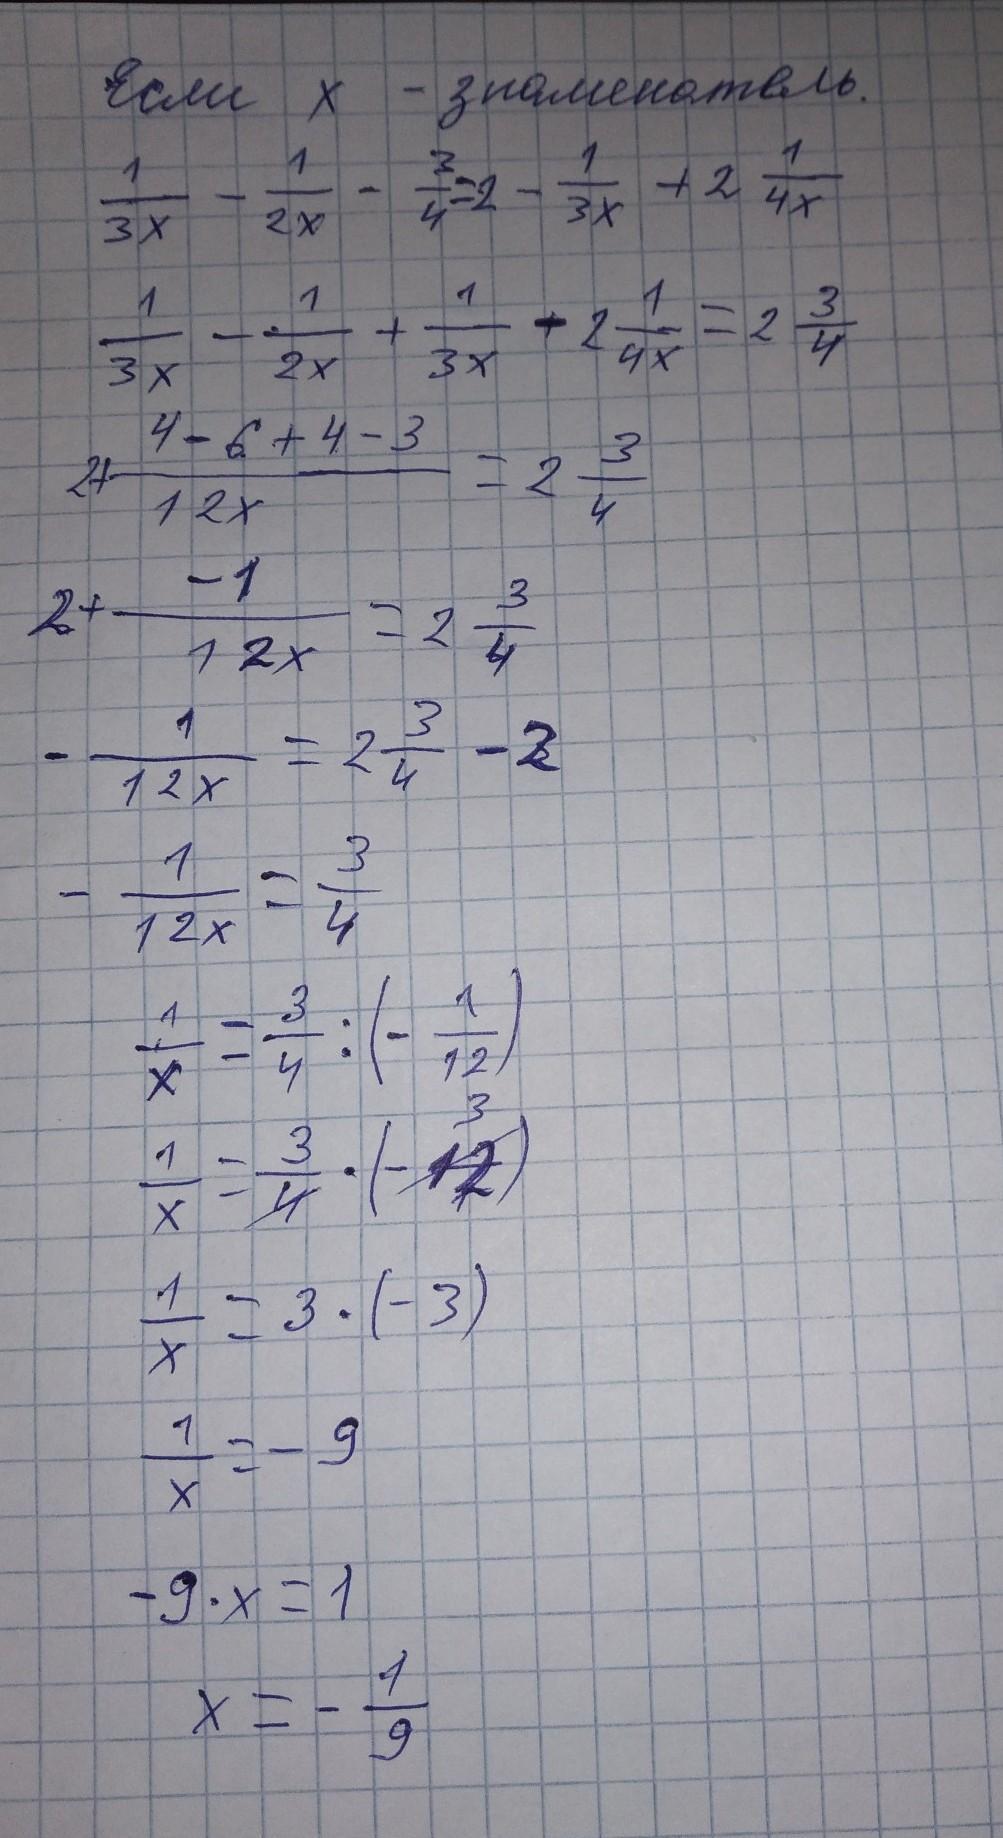 Если x - знаменатель.
1/3x - 1/2x - 3/4 = 2 - 1/3x + 2 1/4x
1/3x - 1/2x + 1/3x - 2 1/4x = 2 3/4
2+ 4-6+4-3/12x = 2 3/4
2+ -1/12x = 2 3/4
- 1/12x = 2 3/4 - 2
- 1/12x = 3/4
1/x = 3/4 : (- 1/12)
1/x = 3/4 · (- 12) 3
1/x = 3 · (-3)
1/x = - 9
-9·x = 1
x = - 1/9